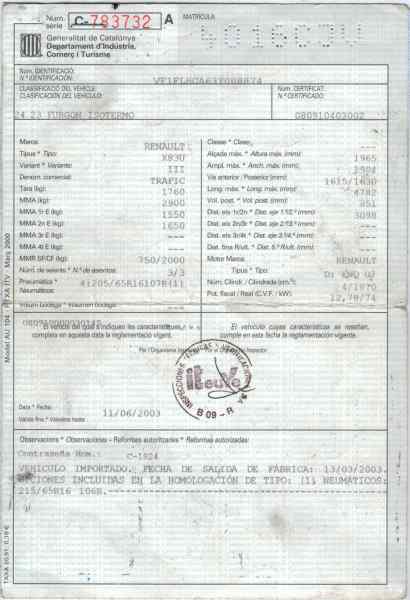 Núm. sèrie C-783732 A MATRÍCULA
Generalitat de Catalunya
Departament d'Indústria,
Comerç i Turisme
Núm. IDENTIFICACIÓ
N.º IDENTIFICACIÓN
CLASSIFICACIÓ DEL VEHICLE: Núm. CERTIFICAT:
CLASIFICACIÓN DEL VEHÍCULO: N.º CERTIFICADO:
24 23 FURGON ISOTERMO 080910403002
Marca: RENAULT
Tipus * Tipo: X83U
Variant * Variante: III
Denom. comercial: TRAFIC
Tara (kg): 1760
MMA (kg): 2900
MMA 1r E (kg): 1550
MMA 2n E (kg): 1650
MMA 3r E (kg): ---
MMA 4t E (kg): ---
MMR SF/CF (kg): 750/2000
Núm. de seients * N.º de asientos: 3/3
Pneumàtics *
Neumáticos: 4:205/65R16107R(1)
Volum bodega * Volumen bodega: ---
Classe * Clase: ---
Alçada màx. * Altura máx. (mm): 1965
Ampl. màx. * Anch. máx. (mm):
Via anterior / Posterior (mm): 1615/1630
Long. màx. * Long. máx. (mm): 4782
Vol. post. * Vol. post (mm): 851
Dist. eix 1r/2n * Dist. eje 1.º/2.º (mm): 3098
Dist. eix 2n/3r * Dist. eje 2.º/3.º (mm): ---
Dist. eix 3r/4t * Dist. eje 3.º/4.º (mm): ---
---
Motor Marca: RENAULT
Tipus * Tipo:
Núm. Cilindr. / Cilindrada (cm³): 4/1870
Pot. fiscal / Real (C.V.F. / kW): 12,78/74
El vehicle del qual s'indiquen les característiques,
compleix en aquesta data la reglamentació vigent.
El vehículo cuyas características se reseñan,
cumple en esta fecha la reglamentación vigente.
Per l'Organisme Inspector * Por el Organismo Inspector
INSPECCIONES TÉCNICAS Y VERIFICACIONES SA
iteuve
B 09 - R
Data * Fecha: 11/06/2003
Vàlida fins * Valedera hasta
Observacions * Observaciones - Reformes autoritzades * Reformas autorizadas:
Contraseña Hom.: C-1924
VEHICULO IMPORTADO. FECHA DE SALIDA DE FÁBRICA: 13/03/2003.
OPCIONES INCLUIDAS EN LA HOMOLOGACIÓN DE TIPO: (1) NEUMÁTICOS:
215/65R16 106R.
Model AU 104 - TAXA ITV - Març 2000